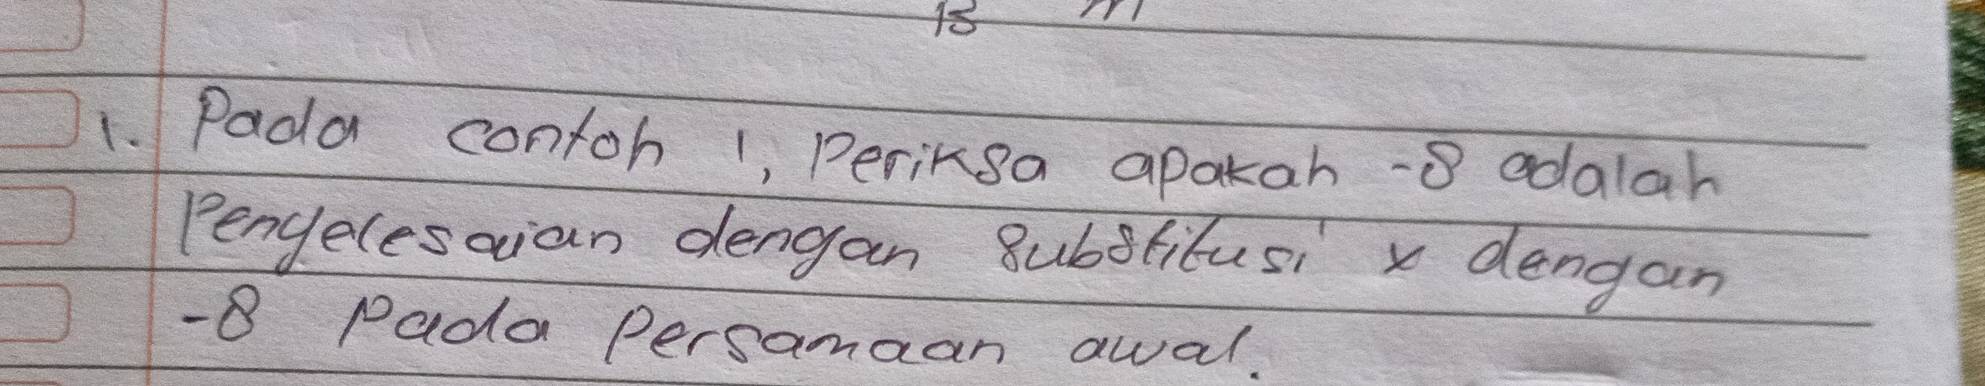 1. Pada contoh 1, Periksa apakah -8 adalah
Pengelesaian dengan Substitusi x dengan
-8 Pada Persamaan awal.